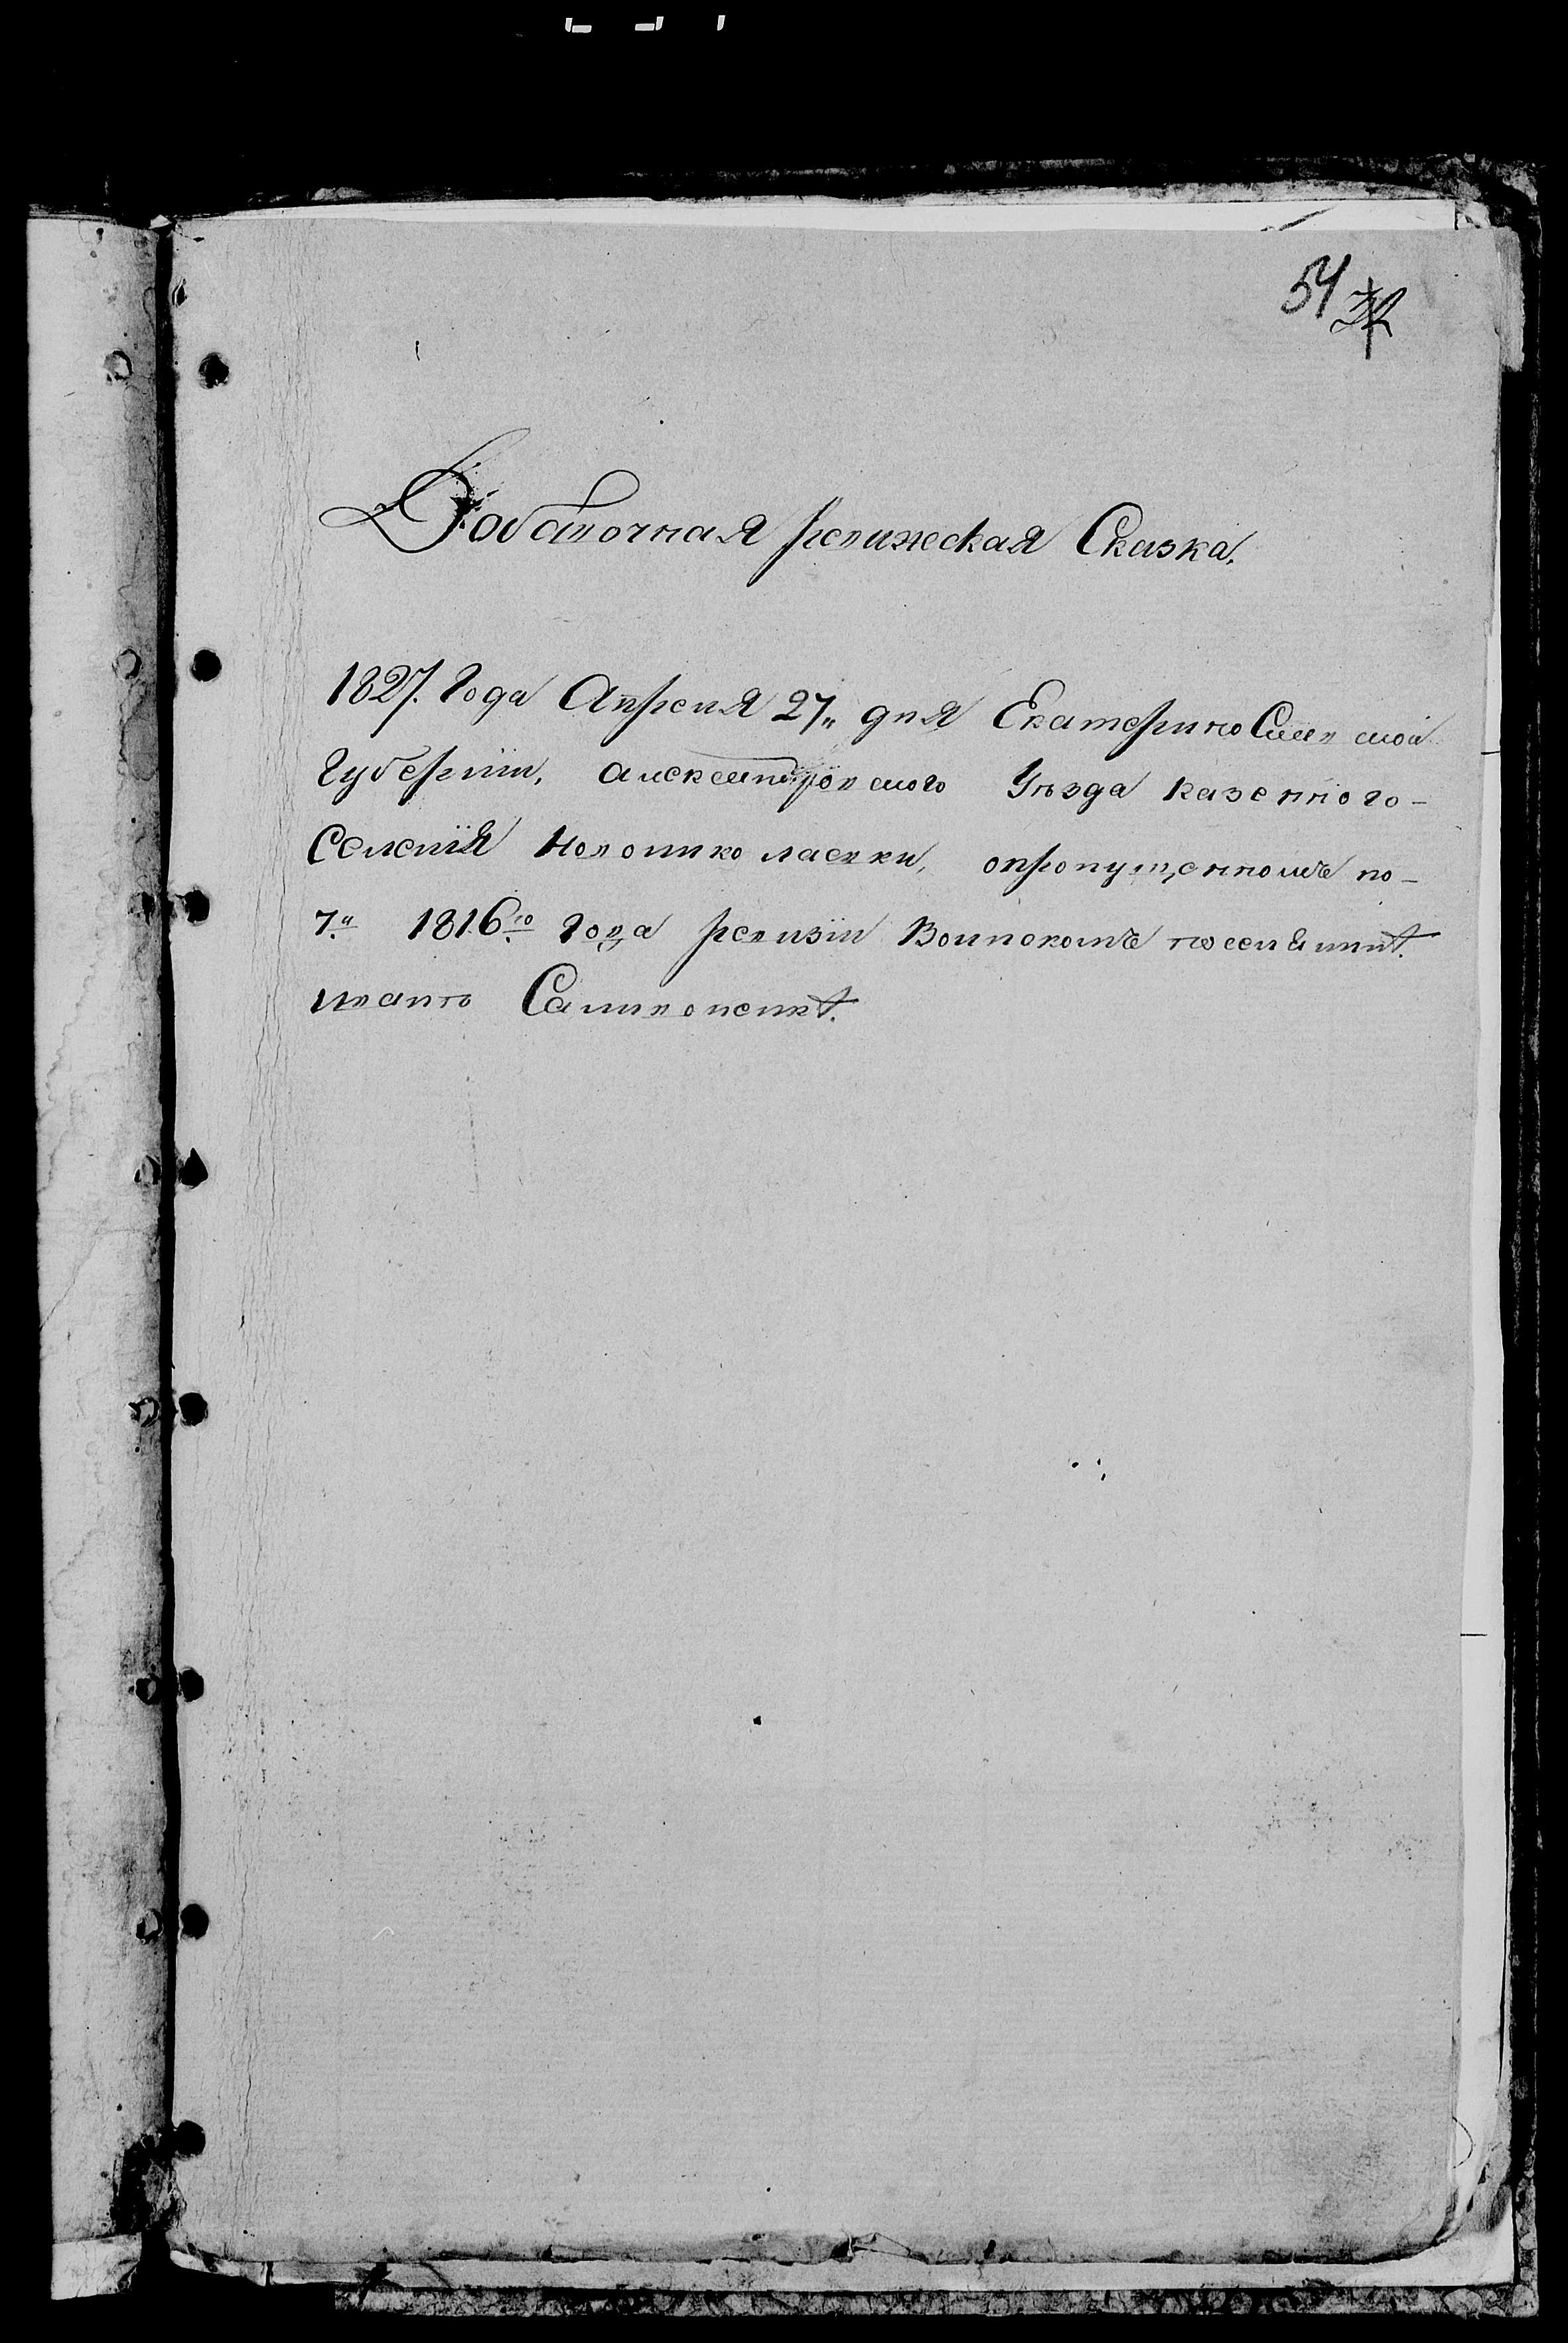 54 32
Добаточная ревижская Сказка.
1827. Года Апреля 27„ дня ЕкатериноСлавской
Губернїи, александровского Уезда казенного-
Селенїя Новониколаевки, опропущенномъ по-
7.й 1816го Года ревизїи Воинскомъ поселянинѣ.
ивано Саливоненкѣ.